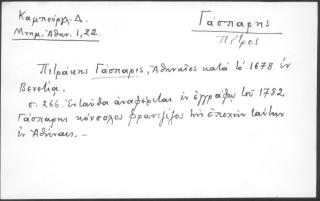 Καμπούργλ. Δ.
Μνημ. Ἀθην. 1, 22.
Γάσπαρης
Πέτρος
Πετράκης Γάσπαρις, Ἀθηναῖος κατὰ τὸ 1678 ἐν
Βενετίᾳ.
σ. 266. Ἐνταῦθα ἀναφέρεται ἐν ἐγγράφῳ τοῦ 1782
Γάσπαρης κόνσολος φραντζέζος τὴν ἐποχὴν ταύτην
ἐν Ἀθήναις. —